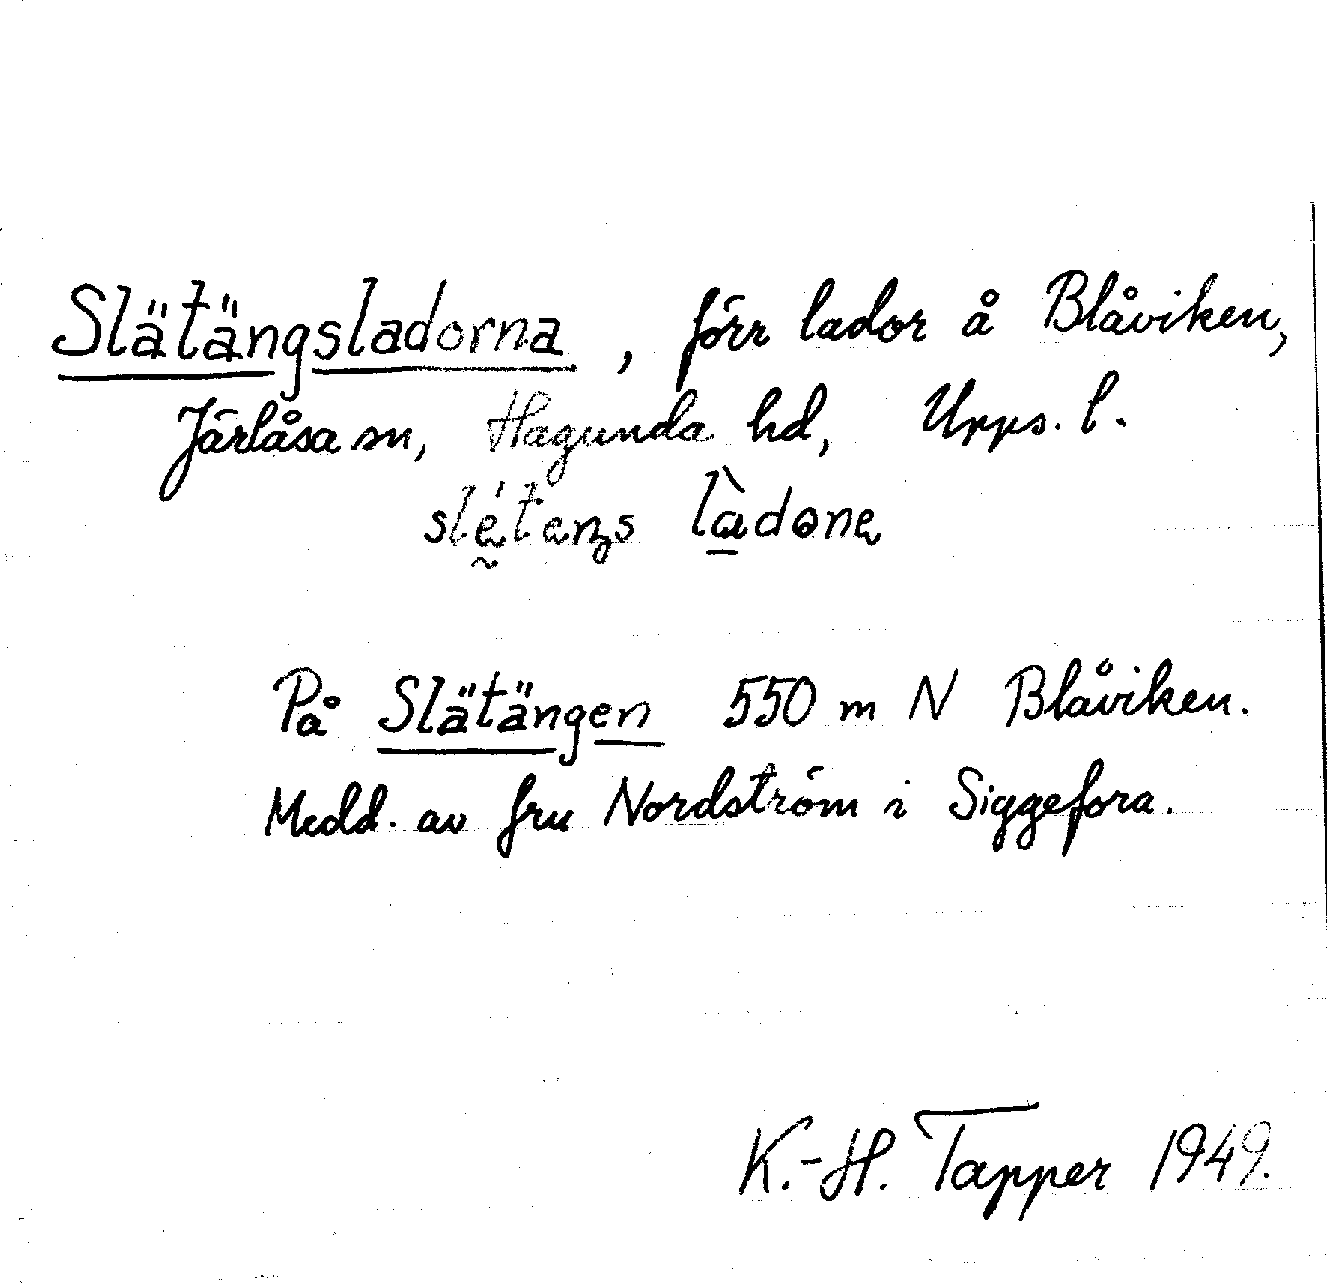 Slätängsladorna, förr lador å Blåviken,
Järlåsa sn, Hagunda hd, Upps. l.
slétaŋs làdone
På Slätängen 550 m N Blåviken.
Medd. av fru Nordström i Siggefora.
K.-H. Tapper 1949.